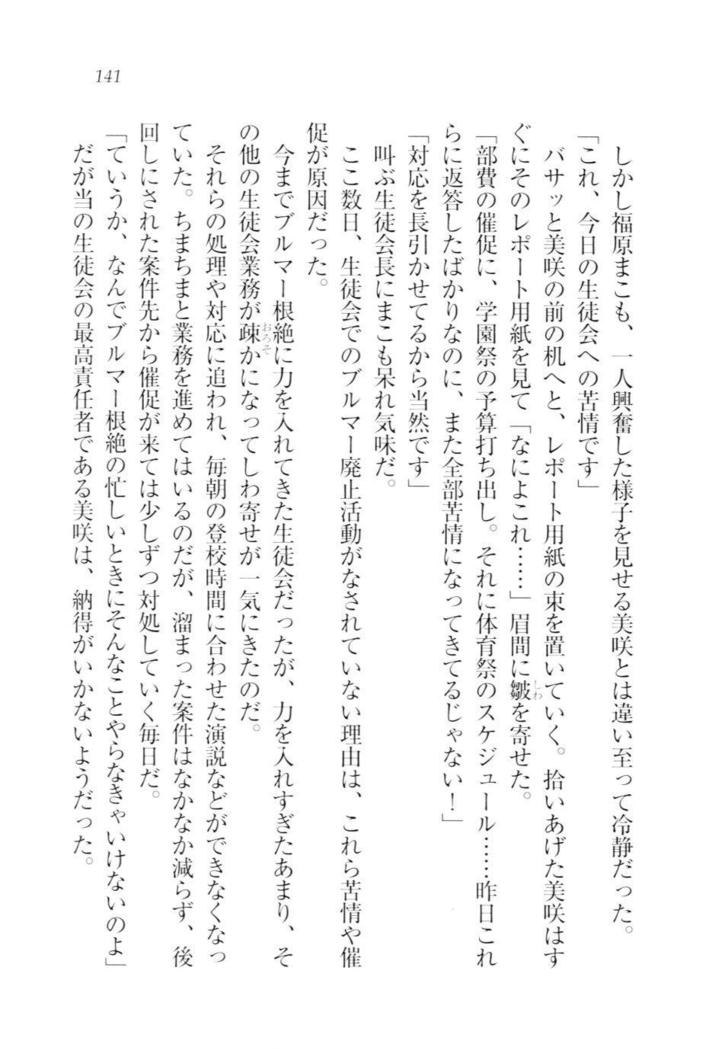 141
しかし福原まこも、一人興奮した様子を見せる美咲とは違い至って冷静だった。
「これ、今日の生徒会への苦情です」
バサッと美咲の前の机へと、レポート用紙の束を置いていく。拾いあげた美咲はす
ぐにそのレポート用紙を見て「なによこれ……」眉間に皺を寄せた。
「部費の催促に、学園祭の予算打ち出し。それに体育祭のスケジュール……昨日これ
らに返答したばかりなのに、また全部苦情になってきてるじゃない！」
「対応を長引かせてるから当然です」
叫ぶ生徒会長にまこも呆れ気味だ。
ここ数日、生徒会でのブルマー廃止活動がなされていない理由は、これら苦情や催
促が原因だった。
今までブルマー根絶に力を入れてきた生徒会だったが、力を入れすぎたあまり、そ
の他の生徒会業務が疎かになってしわ寄せが一気にきたのだ。
それらの処理や対応に追われ、毎朝の登校時間に合わせた演説などができなくなっ
ていた。ちまちまと業務を進めてはいるのだが、溜まった案件はなかなか減らず、後
回しにされた案件先から催促が来ては少しずつ対処していく毎日だ。
「ていうか、なんでブルマー根絶の忙しいときにそんなことやらなきゃいけないのよ」
だが当の生徒会の最高責任者である美咲は、納得がいかないようだった。